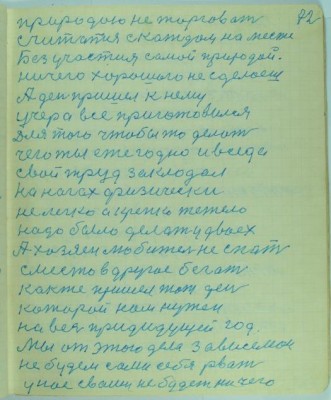 92
природою не торговат
считатся с каждым на месте
Без участия самой природой.
ничего хорошого не сделаеш
А ден пришел к нему
учера все приготовился
Для того чтобы то делат
чего ты ежегодно и всегда
свой труд закладал
на ногах физически
не легко и крепко тежело
надо было делат и двоех
А хозяен любител не спат
с место в другое бегат
как те пришел тот ден
которой нам нужен
на вея придидущий год.
Мы от этого дела зависемои
не будем сами себя рват
у нас своим не будет ничего